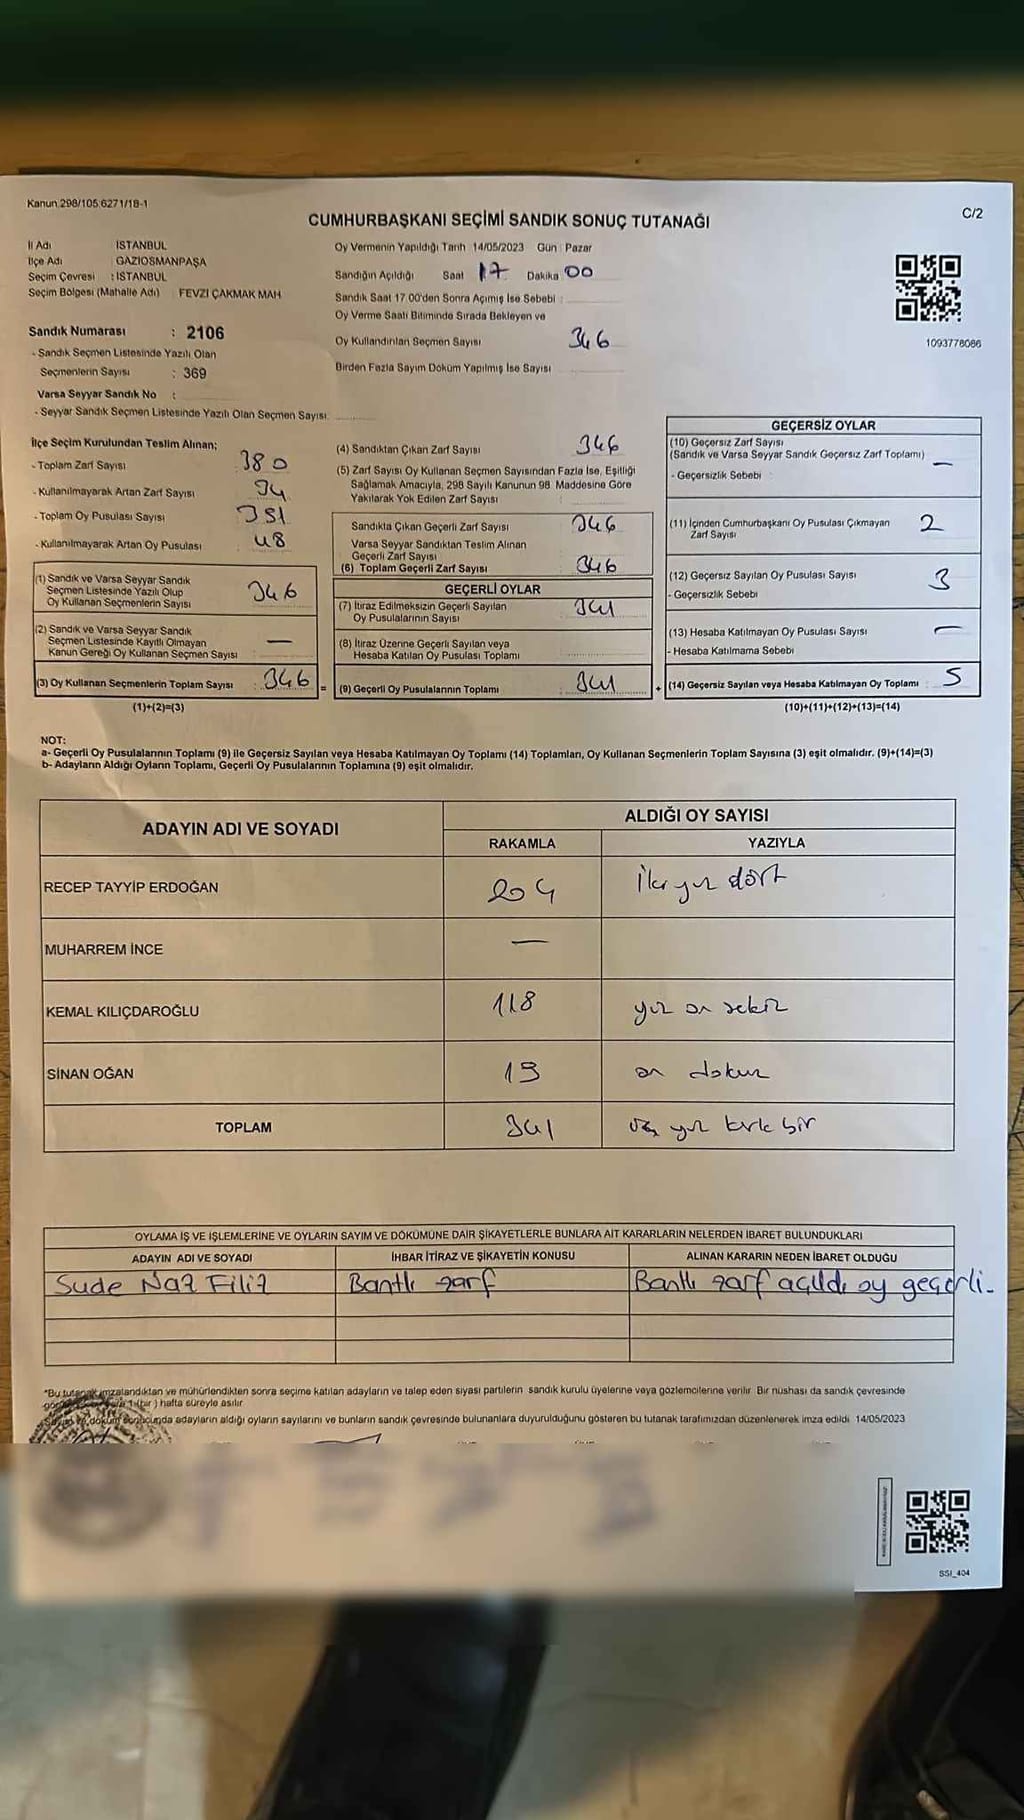 Kanun 298/105 6271/18-1
C/2
CUMHURBAŞKANI SEÇİMİ SANDIK SONUÇ TUTANAĞI
İl Adı İSTANBUL
İlçe Adı : GAZİOSMANPAŞA
Seçim Çevresi : İSTANBUL
Seçim Bölgesi (Mahalle Adı) : FEVZİ ÇAKMAK MAH
Sandık Numarası : 2106
- Sandık Seçmen Listesinde Yazılı Olan
Seçmenlerin Sayısı : 369
Varsa Seyyar Sandık No :
- Seyyar Sandık Seçmen Listesinde Yazılı Olan Seçmen Sayısı
Oy Vermenin Yapıldığı Tarih 14/05/2023 Gün : Pazar
Sandığın Açıldığı Saat 17 Dakika 00
Sandık Saat 17 00'den Sonra Açılmış İse Sebebi :
Oy Verme Saati Bitiminde Sırada Bekleyen ve
Oy Kullandırılan Seçmen Sayısı 346
Birden Fazla Sayım Döküm Yapılmış İse Sayısı
1093778086
İlçe Seçim Kurulundan Teslim Alınan;
- Toplam Zarf Sayısı 380
- Kullanılmayarak Artan Zarf Sayısı 34
- Toplam Oy Pusulası Sayısı 351
- Kullanılmayarak Artan Oy Pusulası 48
(1) Sandık ve Varsa Seyyar Sandık
Seçmen Listesinde Yazılı Olup
Oy Kullanan Seçmenlerin Sayısı 346
(2) Sandık ve Varsa Seyyar Sandık
Seçmen Listesinde Kayıtlı Olmayan
Kanun Gereği Oy Kullanan Seçmen Sayısı —
(3) Oy Kullanan Seçmenlerin Toplam Sayısı : 346 =
(1)+(2)=(3)
(4) Sandıktan Çıkan Zarf Sayısı 346
(5) Zarf Sayısı Oy Kullanan Seçmen Sayısından Fazla İse, Eşitliği
Sağlamak Amacıyla, 298 Sayılı Kanunun 98. Maddesine Göre
Yakılarak Yok Edilen Zarf Sayısı
Sandıkta Çıkan Geçerli Zarf Sayısı 346
Varsa Seyyar Sandıktan Teslim Alınan
Geçerli Zarf Sayısı
(6) Toplam Geçerli Zarf Sayısı 346
GEÇERLİ OYLAR
(7) İtiraz Edilmeksizin Geçerli Sayılan
Oy Pusulalarının Sayısı 341
(8) İtiraz Üzerine Geçerli Sayılan veya
Hesaba Katılan Oy Pusulası Toplamı
(9) Geçerli Oy Pusulalarının Toplamı 341 +
GEÇERSİZ OYLAR
(10) Geçersiz Zarf Sayısı
(Sandık ve Varsa Seyyar Sandık Geçersiz Zarf Toplamı) —
- Geçersizlik Sebebi :
(11) İçinden Cumhurbaşkanı Oy Pusulası Çıkmayan
Zarf Sayısı 2
(12) Geçersiz Sayılan Oy Pusulası Sayısı 3
- Geçersizlik Sebebi
(13) Hesaba Katılmayan Oy Pusulası Sayısı —
- Hesaba Katılmama Sebebi
(14) Geçersiz Sayılan veya Hesaba Katılmayan Oy Toplamı : 5
(10)+(11)+(12)+(13)=(14)
NOT:
a- Geçerli Oy Pusulalarının Toplamı (9) ile Geçersiz Sayılan veya Hesaba Katılmayan Oy Toplamı (14) Toplamları, Oy Kullanan Seçmenlerin Toplam Sayısına (3) eşit olmalıdır. (9)+(14)=(3)
b- Adayların Aldığı Oyların Toplamı, Geçerli Oy Pusulalarının Toplamına (9) eşit olmalıdır.
ADAYIN ADI VE SOYADI
ALDIĞI OY SAYISI
RAKAMLA YAZIYLA
RECEP TAYYİP ERDOĞAN 204 İki yüz dört
MUHARREM İNCE —
KEMAL KILIÇDAROĞLU 118 yüz on sekiz
SİNAN OĞAN 19 on dokuz
TOPLAM 341 üç yüz kırk bir
OYLAMA İŞ VE İŞLEMLERİNE VE OYLARIN SAYIM VE DÖKÜMÜNE DAİR ŞİKAYETLERLE BUNLARA AİT KARARLARIN NELERDEN İBARET BULUNDUKLARI
ADAYIN ADI VE SOYADI İHBAR İTİRAZ VE ŞİKAYETİN KONUSU ALINAN KARARIN NEDEN İBARET OLDUĞU
Sude Naz Filiz Bantlı zarf Bantlı zarf açıldı oy geçerli.
*Bu tutanak imzalandıktan ve mühürlendikten sonra seçime katılan adayların ve talep eden siyasi partilerin sandık kurulu üyelerine veya gözlemcilerine verilir Bir nüshası da sandık çevresinde
1 (bir ) hafta süreyle asılır
Sayım ve döküm sonucunda adayların aldığı oyların sayılarını ve bunların sandık çevresinde bulunanlara duyurulduğunu gösteren bu tutanak tarafımızdan düzenlenerek imza edildi 14/05/2023
SSİ_404